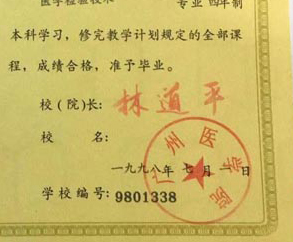 医学检验技术 专业 四年制
本科学习，修完教学计划规定的全部课
程，成绩合格，准予毕业。
校(院)长：林道平
校 名：
广州医学院
一九九八年七月一日
学校编号：9801338